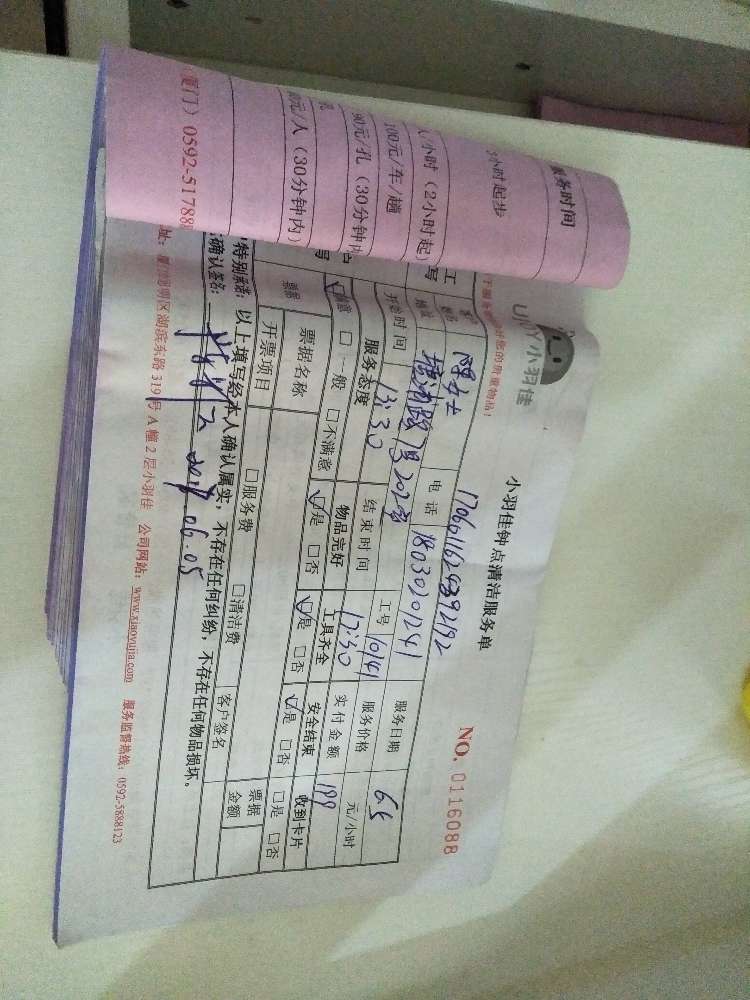 服务时间
3小时起步
人/小时（2小时起）
100元/车/趟
90元/孔（30分钟内
元/人（30分钟内）
厦门）0592-51788
UJOY小羽佳
小羽佳钟点清洁服务单
NO. 0116088
电话 18030201241 工号 10141 服务日期 6.5
开始时间 13:30 结束时间 17:30 服务价格 元/小时
实付金额 199
服务态度 物品完好 工具齐全 安全结束 收到卡片
满意 □一般 □不满意 是 □否 是 □否 是 □否 □是 □否
票据 票据名称 □服务费 □清洁费 客户签名 票据金额
开票项目
特别承诺：以上填写经本人确认属实，不存在任何纠纷，不存在任何物品损坏。
确认签名：
址：厦门思明区湖滨东路319号A幢2层小羽佳 公司网站：www.xiaoyujia.com 服务监督热线：0592-5888123